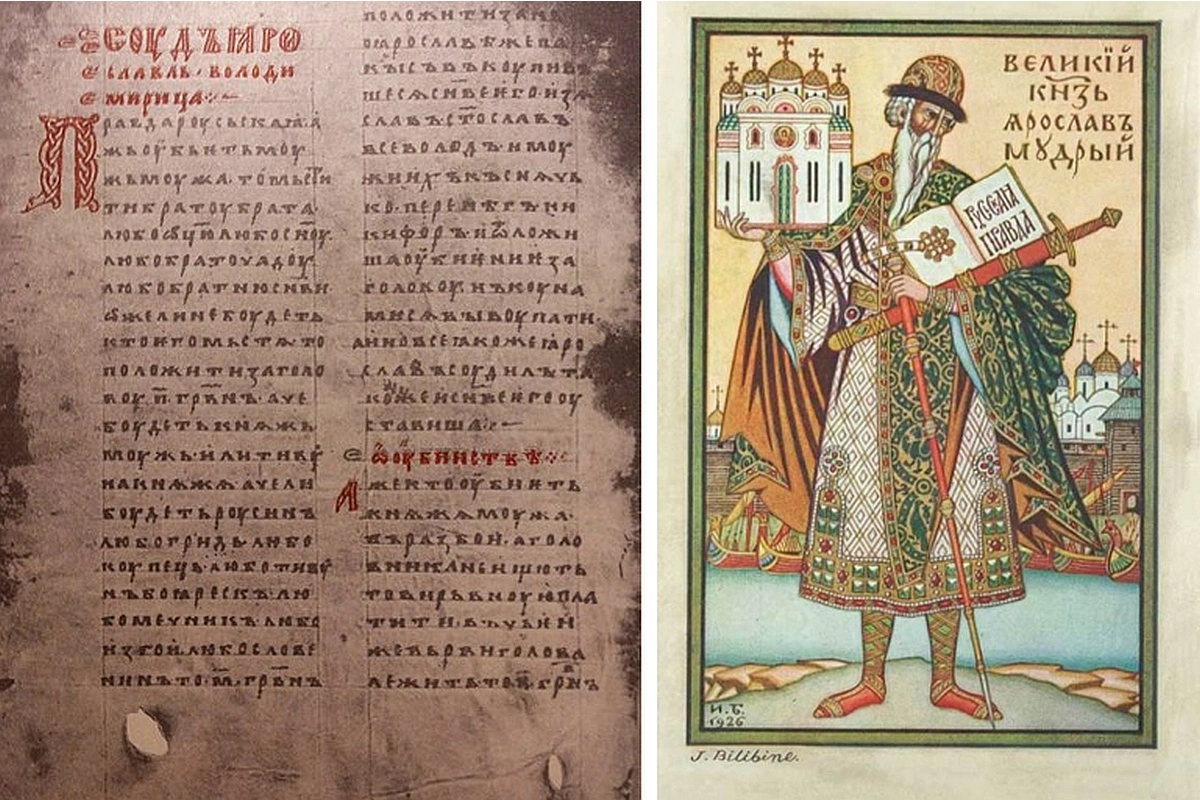 СОУДЪ ꙖРО
СЛАВЛЬ · ВОЛОДИ
МИРИЦА :·
Правда роусьскаꙗ · а
жь оубьѥть моу
жь моужа · то мьсти
ти братоу брата ·
любо ѿцю любо сноу ·
любо братоучадоу
любо братню снви
ѡже ли не боудеть
кто ѥго мьстѧ · то
положити за голо
воу · п҃ · грвнъ · аче
боудеть кнѧжь
моужь · или тиоу
на кнѧжа · аче ли
боудеть роусинъ
любо гридь · любо
коупець · любо тивоу
нъ боꙗрескъ · лю
бо мечникъ любо
изгои · любо слове
нинъ · то · м҃ · грвнъ
положити за нь
ꙗрославѣ же па
кы съвъкоупивъ
шесѧ снве ѥго · изѧ
славъ · стославъ ·
всеволодъ · и моу
жи ихъ · къснѧчь
ко · перенѣгъ · ни
кифоръ · и ѿложи
ша оубиѥниѥ за
головоу · нъ коуна
ми сѧ выкоупати ·
а ино все ꙗкоже ꙗро
славъ соудилъ · та
коже и снве ѥго оу
ставиша :·
ѡ оубииствѣ :·
Аже кто оубиѥть
кнѧжа моужа ·
въ разбои · а голо
вника не ищють
то вирьвноую пла
тити · въ чьѥи
же вьрви голова
лежить то · п҃ · грвнъ
ВЕЛИКІЙ
КНЗЬ
ѦРОСЛАВЪ
МꙊДРЫЙ
РУССКАѦ
ПРАВДА
И.Б.
1926
J. Bilibine.